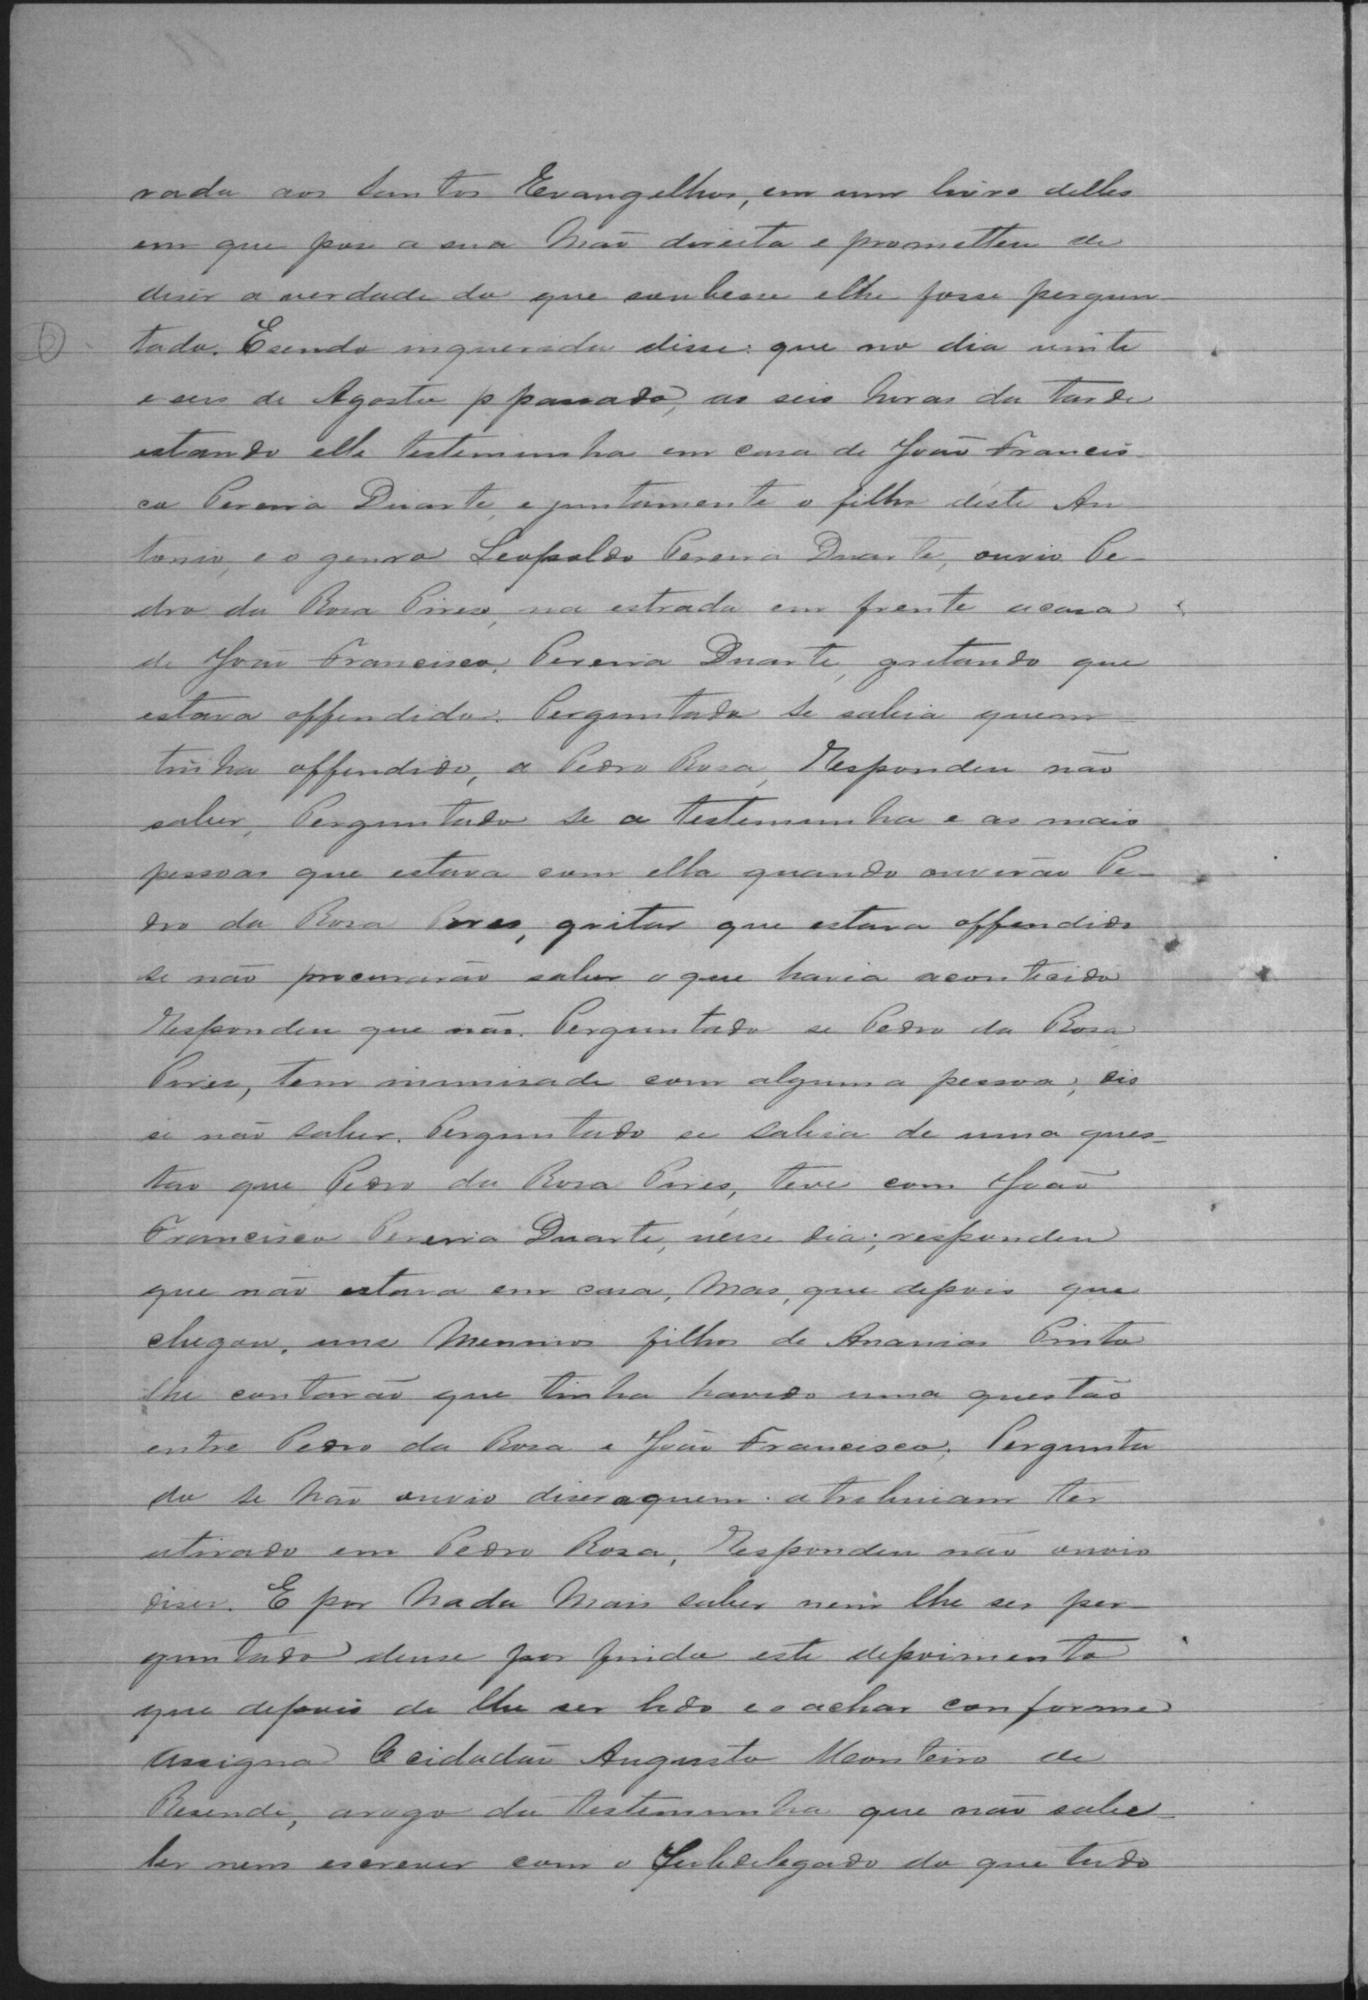 rada aos Santos Evangelhos, em um livro delles
em que pos a sua mão direita e prometteu de
diser a verdade do que soubesse elhe fosse pergun-
tado. Esendo inquerida disse: que no dia vinte
e seis de Agosto p passado, as seis horas da tarde
estando elle testemunha em casa de João Francis-
co Pereira Duarte, e juntamente o filho deste An
tonio, e o genro Leopoldo Pereira Duarte, ouvio Pe-
dro da Rosa Pires, na estrada em frente acasa
de João Francisco Pereira Duarte, gritando que
estava offendido. Perguntado se sabia quem
tinha offendido, a Pedro Rosa, Respondeu não
saber, Perguntado se a testemunha e as mais
pessoas que estava com ella quando ouvirão Pe-
dro da Rosa Pires, gritar que estava offendido
se não procurarão saber o que havia acontecido
Respondeu que não. Perguntado se Pedro da Rosa
Pires, tem inimisade com alguma pessoa, dis
se não saber. Perguntado se sabia de uma ques-
tão que Pedro da Rosa Pires, teve com João
Francisco Pereira Duarte, nesse dia; respondeu
que não estava em casa, mas, que depois que
chegou, uns meninos filhos de Ananias Pinto
lhe contarão que tinha havido uma questão
entre Pedro da Rosa e João Francisco; Pergunta
do se não ouvio diser aquem atribuiam ter
atirado em Pedro Rosa, Respondeu não ouvio
diser. E por nada mais saber nem lhe ser per-
guntado deuse por findo este depoimento
que depois de lhe ser lido e o achar conforme
assigna O cidadão Augusto Monteiro de
Resende, arogo da testemunha que não sabe
ler nem escrever com o Subdelegado do que tudo